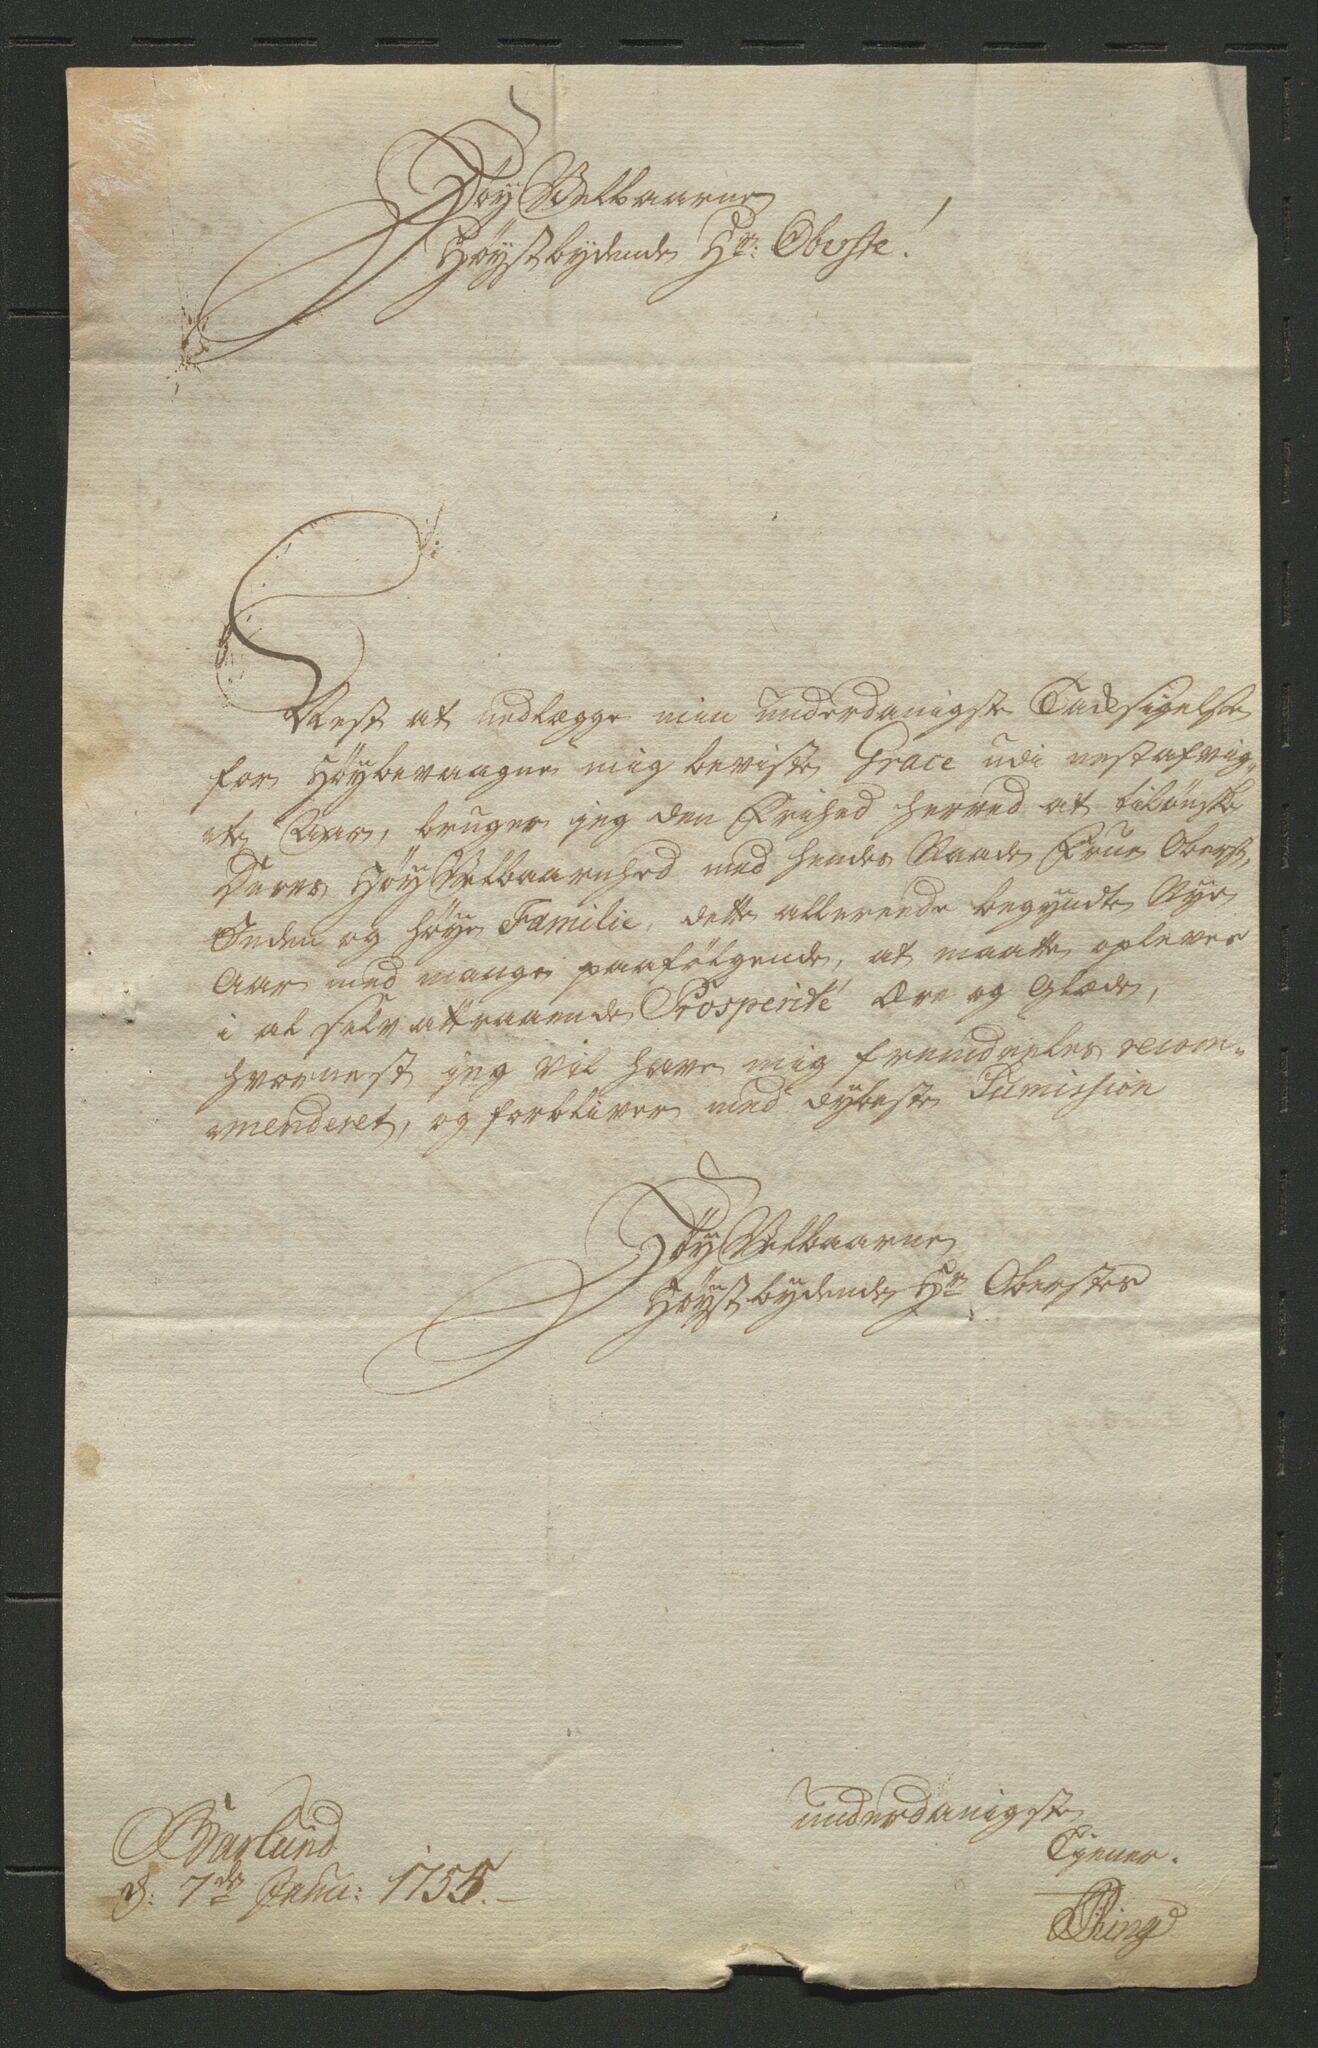 Høy Welbaarne
Høystbydende Hr: Oberste!
Nest at nedlegge min underdanigste Tacksigelse
for Høybevaagne mig beviste Grace udi nestafvig-
te Aar, bruger jeg den Frihed herved at tilønske
Deres HøyWelbaarnhed med hendes Naade Frue Oberst-
Inden og høye Familie, dette allereede begyndte Nye
Aar med mange paafølgende, at maatte opleves
i al selv attraaende Prosperité Ære og Glæde,
hvornest jeg vil have mig fremdeeles recom-
menderet, og forbliver med dybeste Sumission
Høy Welbaarne
Høystbydende Hr Oberstes
underdanigste
Tjener.
Barlund
d: 7de Janu: 1755.